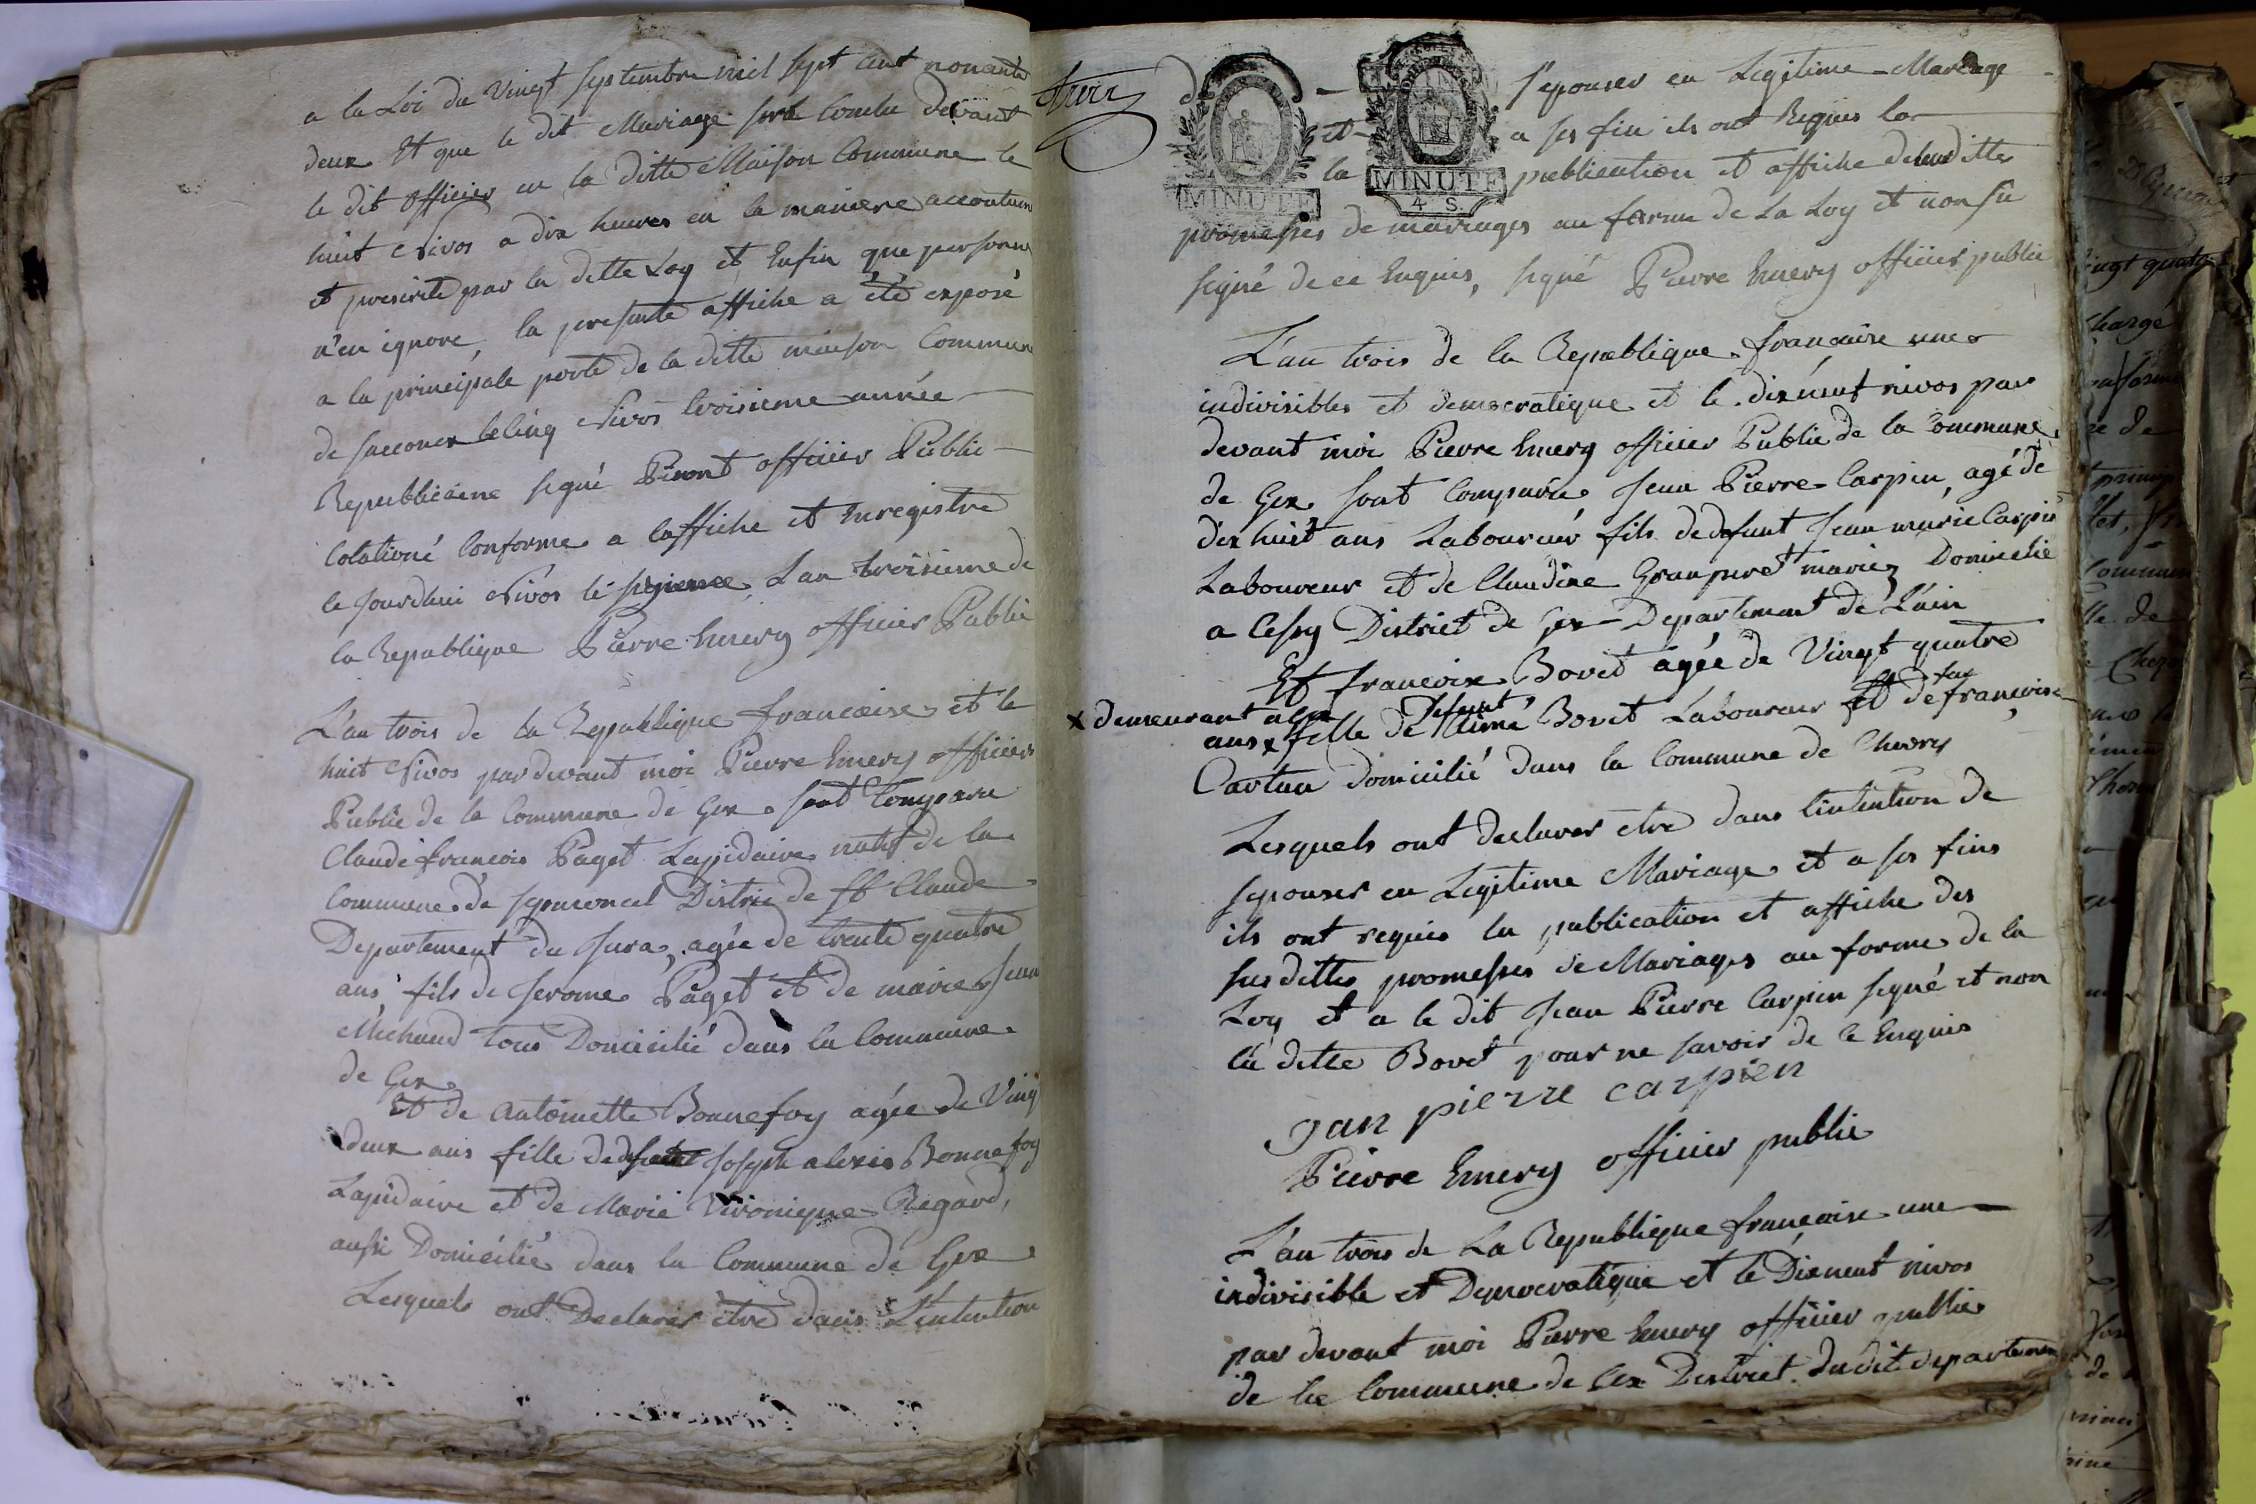 a la Loi du Vingt septembre mil sept cent nonante
deux Et que le dit Mariage sera Conclu devant
le dit Officier en la ditte Maison Commune le
huit Nivos a dix heures en la maniere accoutum
et prescrite par la ditte Loy et Enfin que personne
n'en ignore, la presente affiche a été exposé
a la principale porte de la ditte maison Commune
de Sacconex le Cinq Nivos troisieme année
Republicaine signé Piront officier Public
Colationé Conforme a laffiche et Enregistre
le Jourdhui Nivos le Lan troisieme de
la Republique Pierre Emery officier Public
L'an trois de la Republique francaise et le
huit Nivos par devant moi Pierre Emery officier
Public de la Commune de Gex sont Comparu
Claude francois Paget Lapidaire natif de la
Commune de Septmoncel Distric de St Claude
Departement du Jura, agée de trente quatre
ans fils de Jerome Paget et de marie Jean
Michaud tous Domicilié dans la Commune
de Gex
Et de Antoinette Bonnefoy agée de Ving
deux ans fille de defunt Joseph alexis Bonnefoy
Lapidaire et de Marie Vironique Regard,
aussi Domicilié dans la Commune de Gex
Lesquels ont Declarer etre dans L'intention
de s'epouser en Legitime Mariage
et a ses fin ils ont Requis la
la publication et affiche desdittes
promesses de mariages au forme de La Loy et non su
signé de ce Enquis, signé Pierre Emery officier public
L'an trois de la Republique francaise une
indivisibles et democratique et le dixneuf nivos par
devant moi Pierre Emery officier Public de la Commune
de Gex sont Comparu Jean Pierre Carpin, agé de
dix huit ans Laboureur fils de defunt Jean marie Carpin
Laboureur et de Claudine Granperet mariez Domicilie
a Cessy District de Gex Departement de L'ain
Et francoise Bovet agée de Vingt quatre
x demeurant a Gex
defunt feu
ans x fille de Aimé Bovet Laboureur Et de francoise
Cartan domicilié dans la Commune de Chevry
Lesquels ont declarer etre dans lintention de
sepouser en Legitime Mariage et a ses fins
ils ont requis la publication et affiche des
sus dittes promesses de Mariages au forme de la
Loy et a le dit Jean Pierre Carpin signé et non
la ditte Bovet pour ne savoir de ce Enquis
jan pierre carpien
Pierre Emery officier public
L'an trois de La Republique françaisse une
indivisible et Democratique et le Dixneuf nivos
par devant moi Pierre Emery officier public
de la Commune de Gex District dudit departement
MINUTE
MINUTE
4 S.